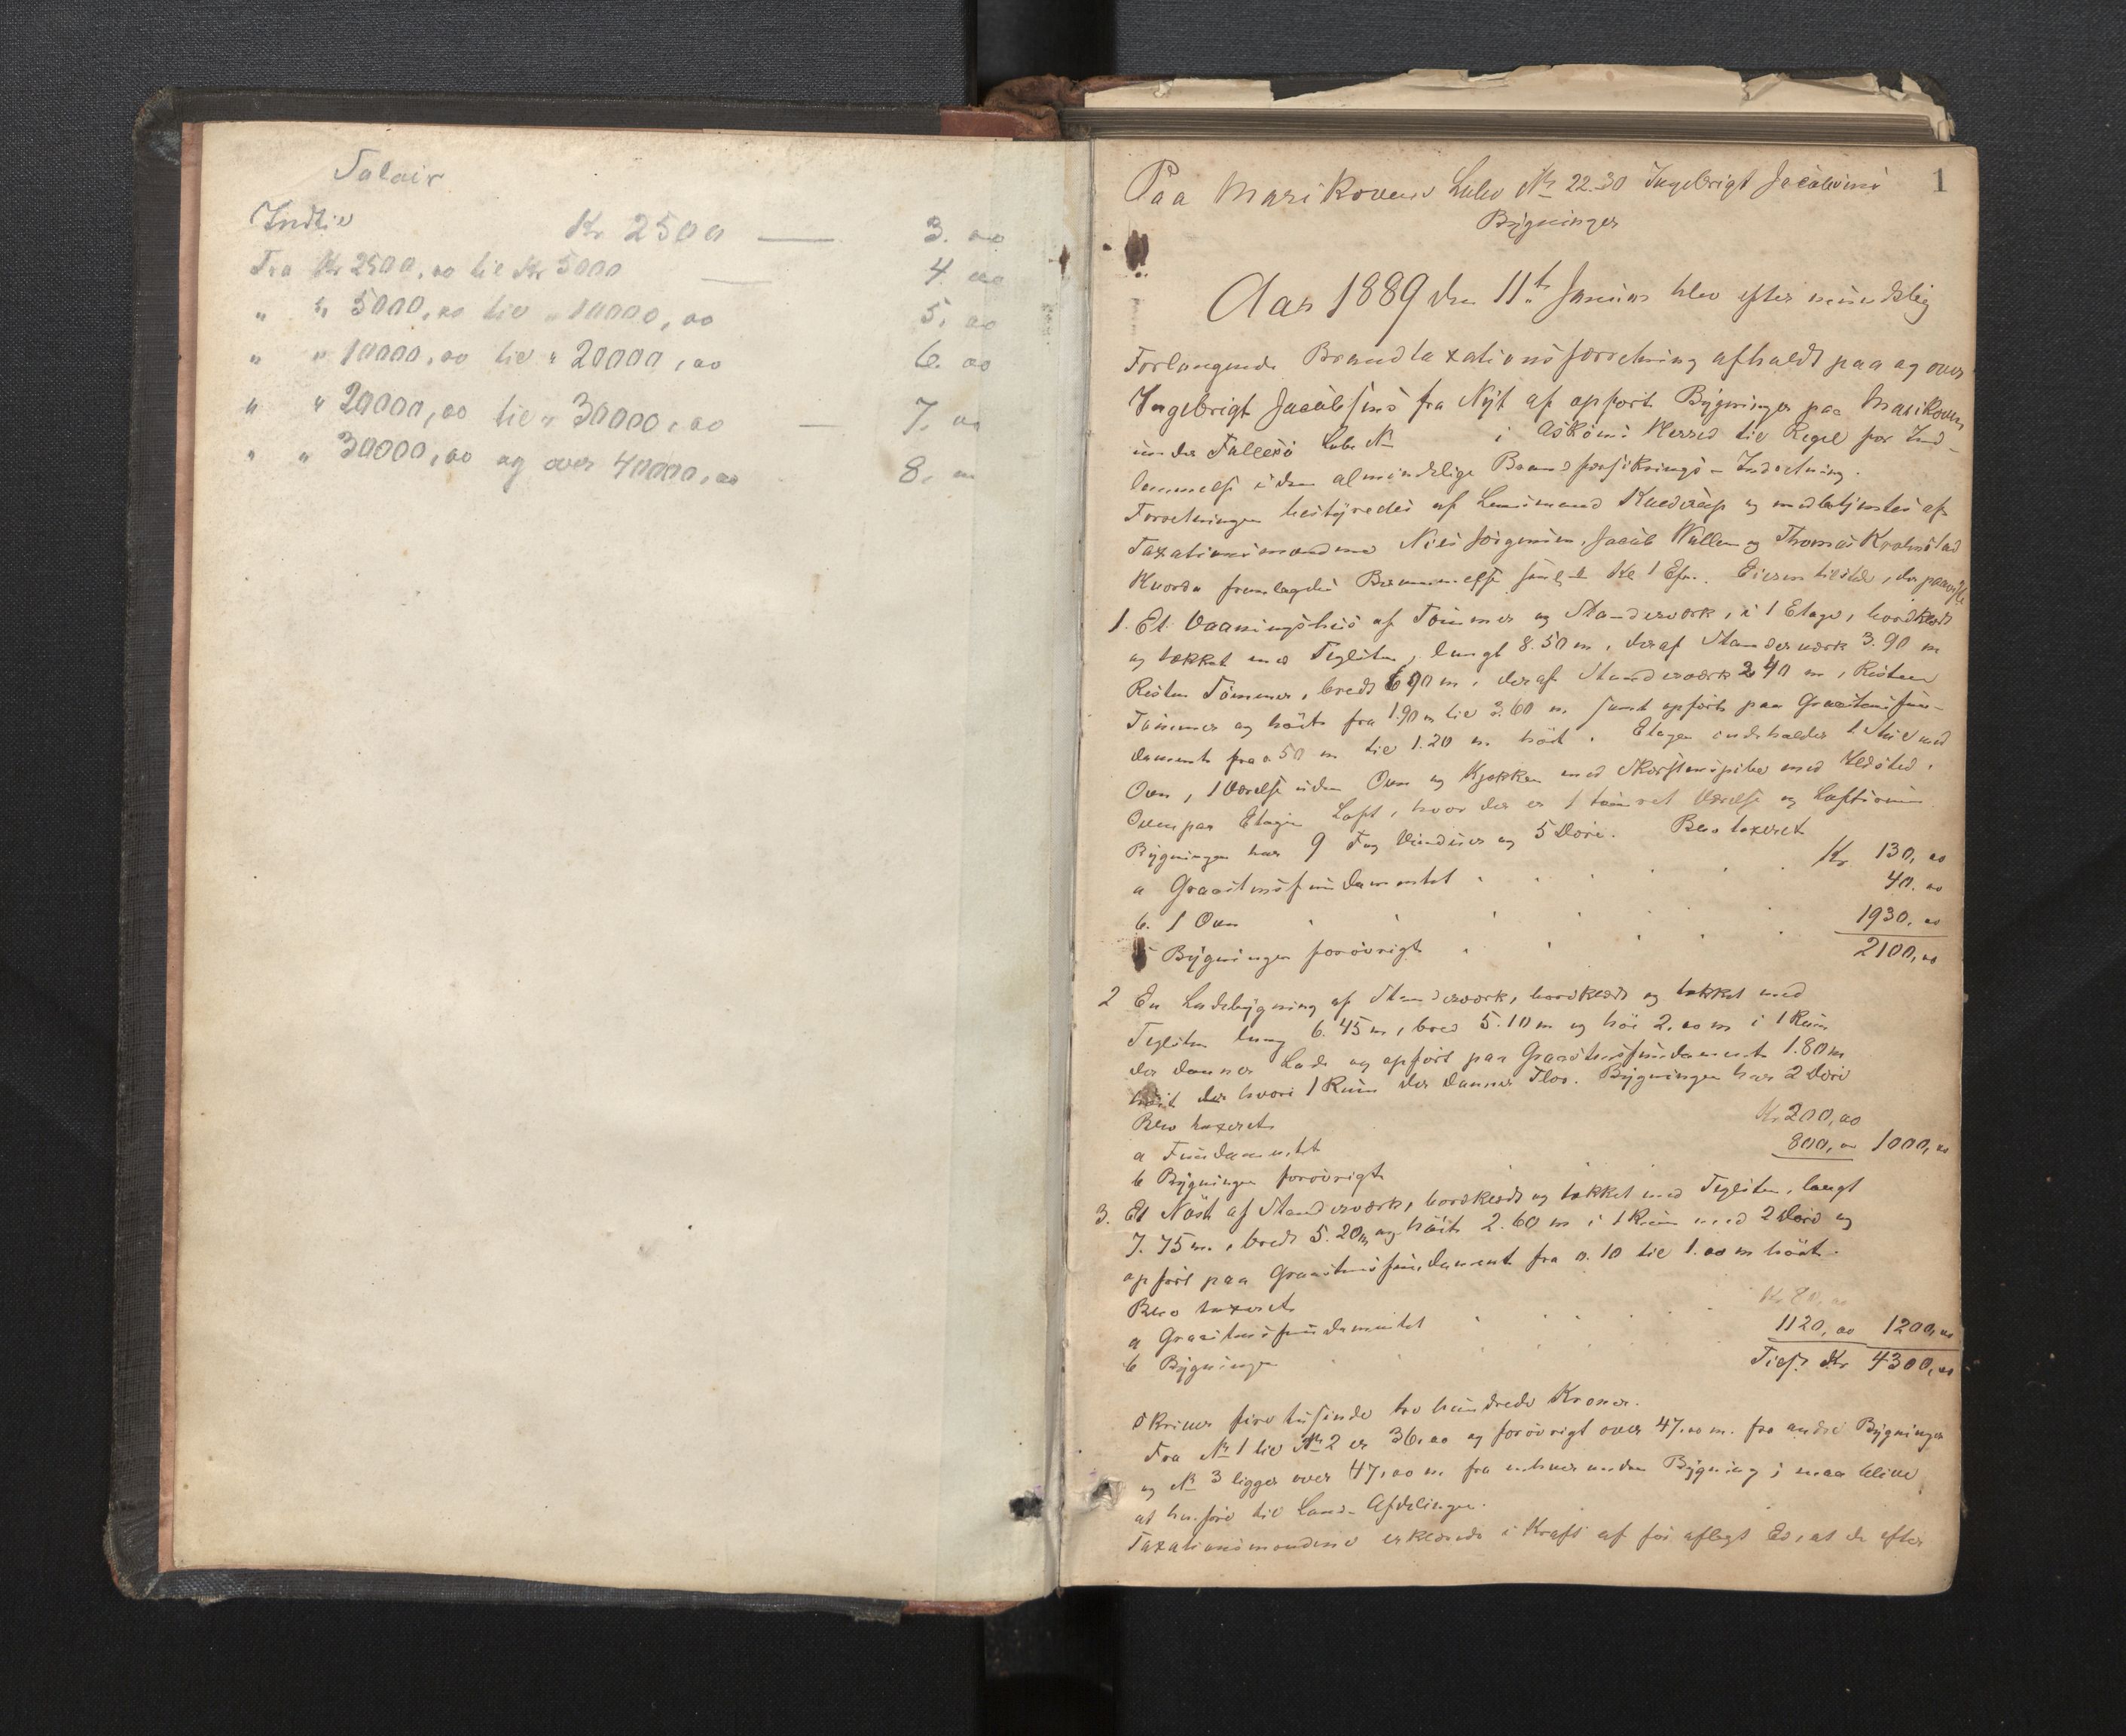 Salair
Indtil Kr 2500 — 3. 00
Fra Kr 2500,00 til Kr 5000 — 4. 00
" " 5000,00 til " 10000,00 5. 00
" " 10000,00 til " 20000,00 6. 00
" " 20000,00 til " 30000,00 — 7. 00
" " 30000,00 og over 40000,00 8. 00
1
Paa Marikoven Løbe No 22.30 Ingebrigt Jacobsens
Bygninger
Aar 1889 den 11te Januar blev efter mundtlig
Forlangende Brandtaxationsforretning afholdt paa og over
Ingebrigt Jacobsens fra Nyt af opført Bygninger paa Marikoven
under Løbe No i Askøens Herred til Regel for Ind-
lemmelse i den almindelige Brandforsikrings-Indretning.
Forretningen bestyredes af Lensmand og medbetjentes af
Taxationsmændene Nils Jørgensen, Jacob Wallem og Thomas
Hvorda fremlagdes Berammelse Kl 1 Efm. Eieren tilstede, der paaviste
1. Et Vaaningshus af Tømmer og Standerværk, i 1 Etage, bordklædt
og tækket med Teglsten, langt 8.50 m, deraf Standerværk 3.90 m
Resten Tømmer, bredt 6 90 m, deraf Standerværk 2 40 m, Resten
Tømmer og høit fra 1.90 m til 3.60 m. samt opført paa Graastensfun-
dament fra 0.50 m til 1.20 m høit. Etagen indeholder 1 Stue med
Ovn, 1 Værelse uden Ovn og Kjøkken med Skorstenspibe med Ildsted.
Ovenpaa Etagen Loft, hvor der er 1 tømret Værelse og Loftsrum
Bygningen har 9 Fag Vinduer og 5 Døre. Blev taxeret
a Graastensfundamentet Kr 130,00
b. 1 Ovn 40.00
Bygningen forøvrigt 1930,00
2100,00
2 En Ladebygning af Standerværk, bordklædt og tækket med
Teglsten lang 6.45 m, bred 5.10 m og høi 2,00 m i 1 Rum
der danner Lade og opført paa Graastensfundament 1.80 m
høit der hvori 1 Rum der danner Flor. Bygningen har 2 Døre
Blev taxeret
a Fundamentet Kr 200,00
b Bygningen forøvrigt 800,00 1000,00
3. Et Nøst af Standerværk, bordklædt og tækket med Teglsten, langt
7.75 m, bredt 5.20 m og høit 2.60 m i 1 Rum med 2 Døre og
opført paa Graastensfundament fra 0.10 til 1.00 m høit.
Blev taxeret
a Graastensfundamentet Kr 80,00
b Bygningen 1120,00 1200,00
Tils. Kr 4300,00
skriver fire tusinde tre hundrede Kroner.
Fra No 1 til No 2 er 36,00 og forøvrigt over 47,00 m. fra andre Bygninger
og No 3 ligger over 47,00 m fra enhver anden Bygning; maa blive
at henføre til Land-Afdelingen.
Taxationsmændene erklærede i Kraft af før aflagt Ed, at de efter